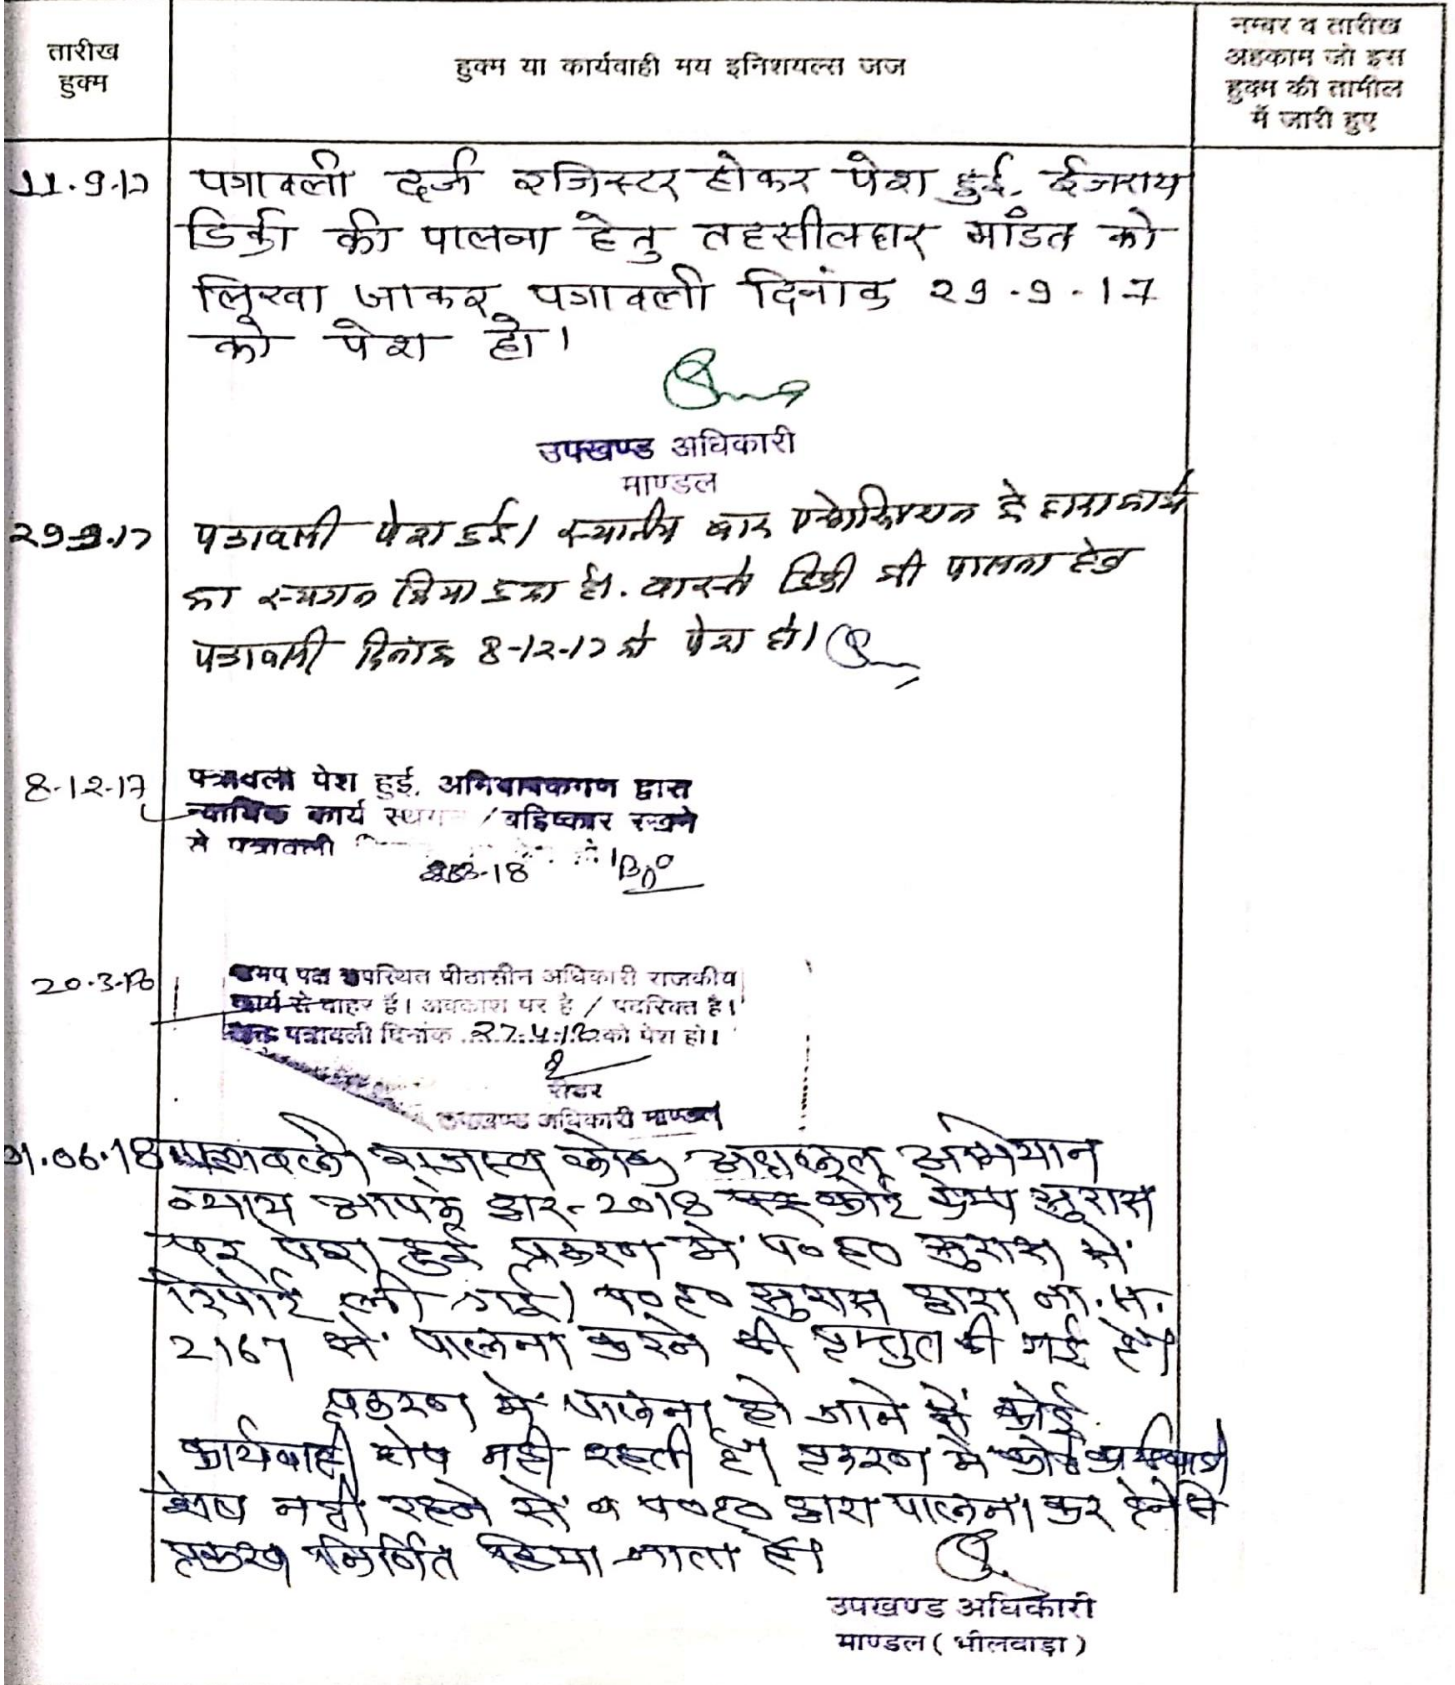 तारीख
हुक्म
हुक्म या कार्यवाही मय इनिशयल्स जज
नम्बर व तारीख
अहकाम जो इस
हुक्म की तामील
में जारी हुए
11.9.17 पत्रावली दर्ज रजिस्टर होकर पेश हुई. ईजराय
डिक्री की पालना हेतु तहसीलदार मांडल को
लिखा जाकर पत्रावली दिनांक 29.9.17
को पेश हो।
उपखण्ड अधिकारी
माण्डल
29.9.17 पत्रावली पेश हुई। स्थानीय बार एसोसिएशन के द्वारा कार्य
का स्थगन किया हुआ है. वास्ते डिक्री की पालना हेतु
पत्रावली दिनांक 8-12-17 को पेश हो।
8-12-17 पत्रावली पेश हुई. अभिभाषकगण द्वारा
न्यायिक कार्य स्थगन / बहिष्कार रखने
से पत्रावली
20.3.18 उभय पक्ष उपस्थित पीठासीन अधिकारी राजकीय
कार्य से बाहर है। अवकाश पर है / पदरिक्त है।
अतः पत्रावली दिनांक 27.4.18 को पेश हो।
रीडर
उपखण्ड अधिकारी माण्डल
1.06.18 पत्रावली राजस्व लोक अदालत अभियान
न्याय आपके द्वार-2018 कोर्ट केम्प सुरास
पर पेश हुई प्रकरण में प०ह० सुरास से
रिपोर्ट ली गई। प०ह० सुरास द्वारा ना.म.
2167 से पालना करने की प्रस्तुत की गई है।
प्रकरण में पालना हो जाने से कोई
कार्यवाही शेष नही रहती है। प्रकरण में कोई कार्यवाही
शेष नही रहने से व प०ह० द्वारा पालना कर देने से
प्रकरण निर्णित किया जाता है।
उपखण्ड अधिकारी
माण्डल (भीलवाड़ा)